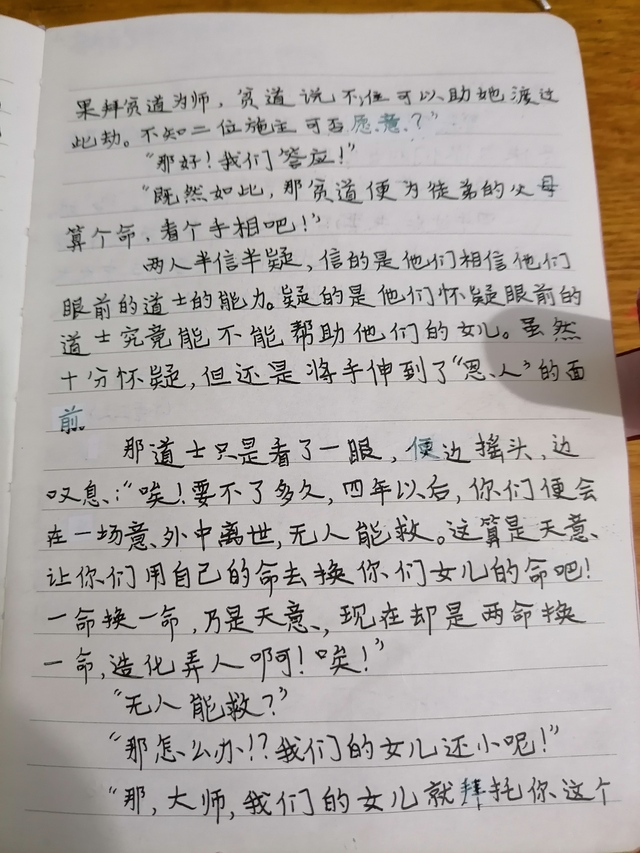 果拜贫道为师，贫道说不住可以助她渡过
此劫。不知二位施主可否愿意？”
“那好！我们答应！”
“既然如此，那贫道便为徒弟的父母
算个命，看个手相吧！”
两人半信半疑，信的是他们相信他们
眼前的道士的能力。疑的是他们怀疑眼前的
道士究竟能不能帮助他们的女儿。虽然
十分怀疑，但还是将手伸到了“恩人”的面
前。
那道士只是看了一眼，便边摇头，边
叹息：“唉！要不了多久，四年以后，你们便会
在一场意外中离世，无人能救。这算是天意、
让你们用自己的命去换你们女儿的命吧！
一命换一命，乃是天意，现在却是两命换
一命，造化弄人啊！唉！”
“无人能救？”
“那怎么办！？我们的女儿还小呢！”
“那，大师，我们的女儿就拜托你这个